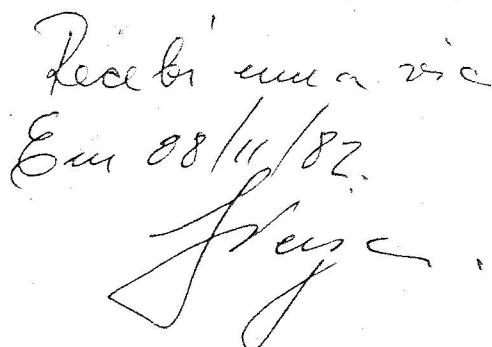 Recebi uma via
Em 08/11/82.